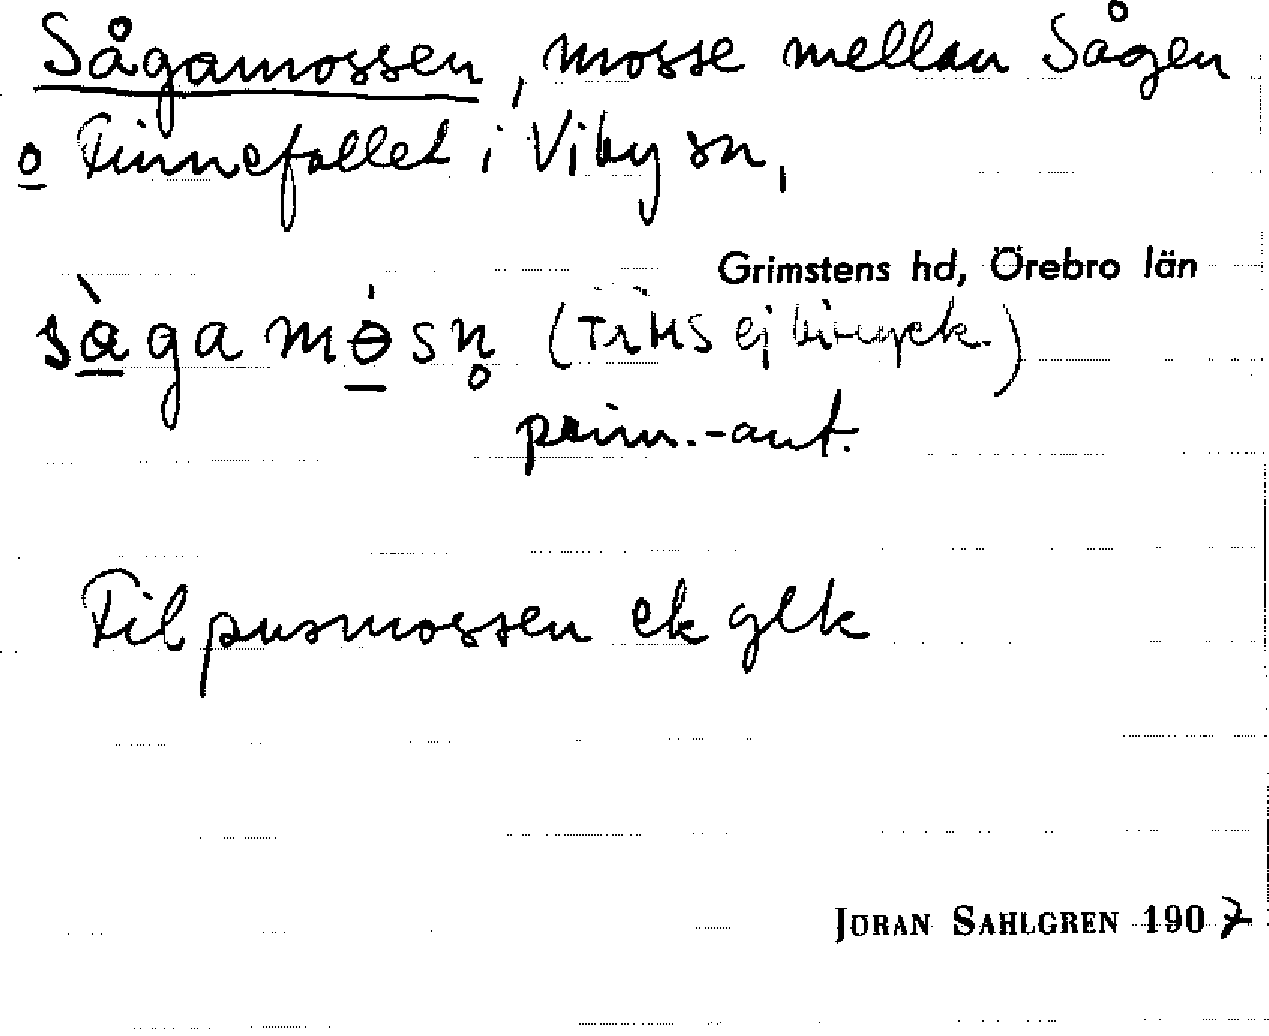 Sågamossen, mosse mellan Sågen
o Finnefallet i Viby sn,
Grimstens hd, Örebro län
sàgamosn̥ (TrHS ej
prim.-ant.
Filpusmossen ek glk
JÖRAN SAHLGREN 1907